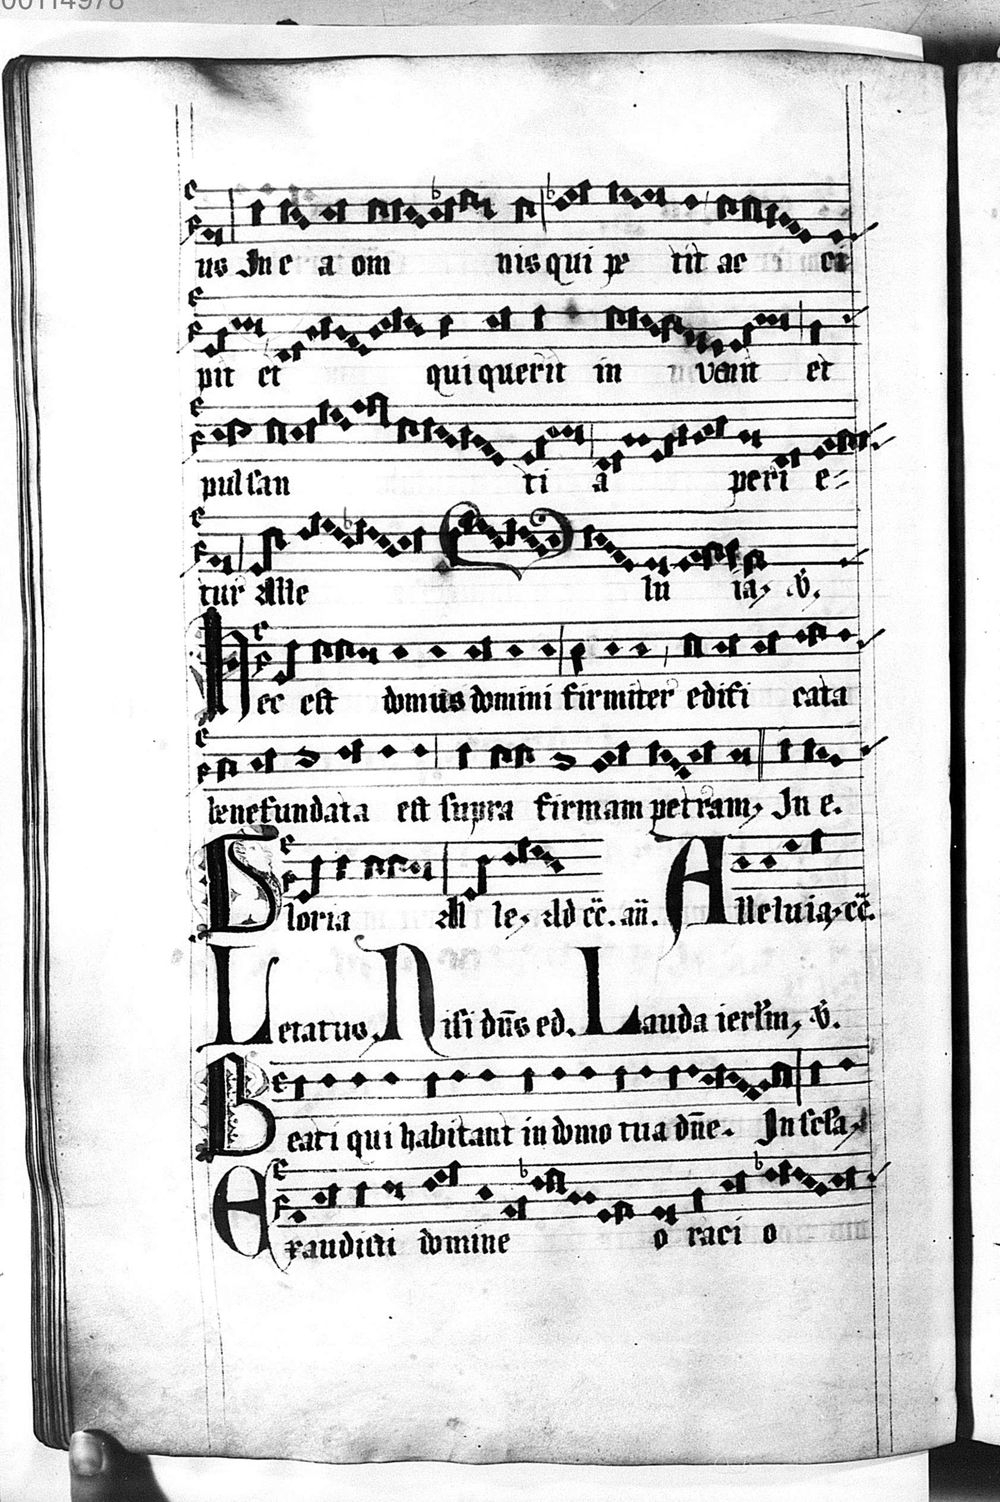 00114978
us In e a om nis qui pe tit ac ci
pit et qui querit in venit et
pulsan ti a peri e=
tur Alle lu ia, v̇.
Hec est domus domini firmiter edifi cata
benefundata est supra firmam petram, In e.
Gloria All le, Ad cc̄. an̄. Alleluia, cc̄.
Letatus, Nisi dn̄s ed. Lauda ierlm̄, v̇.
Beati qui habitant in domo tua dn̄e. In scla,
Exaudisti domine o raci o